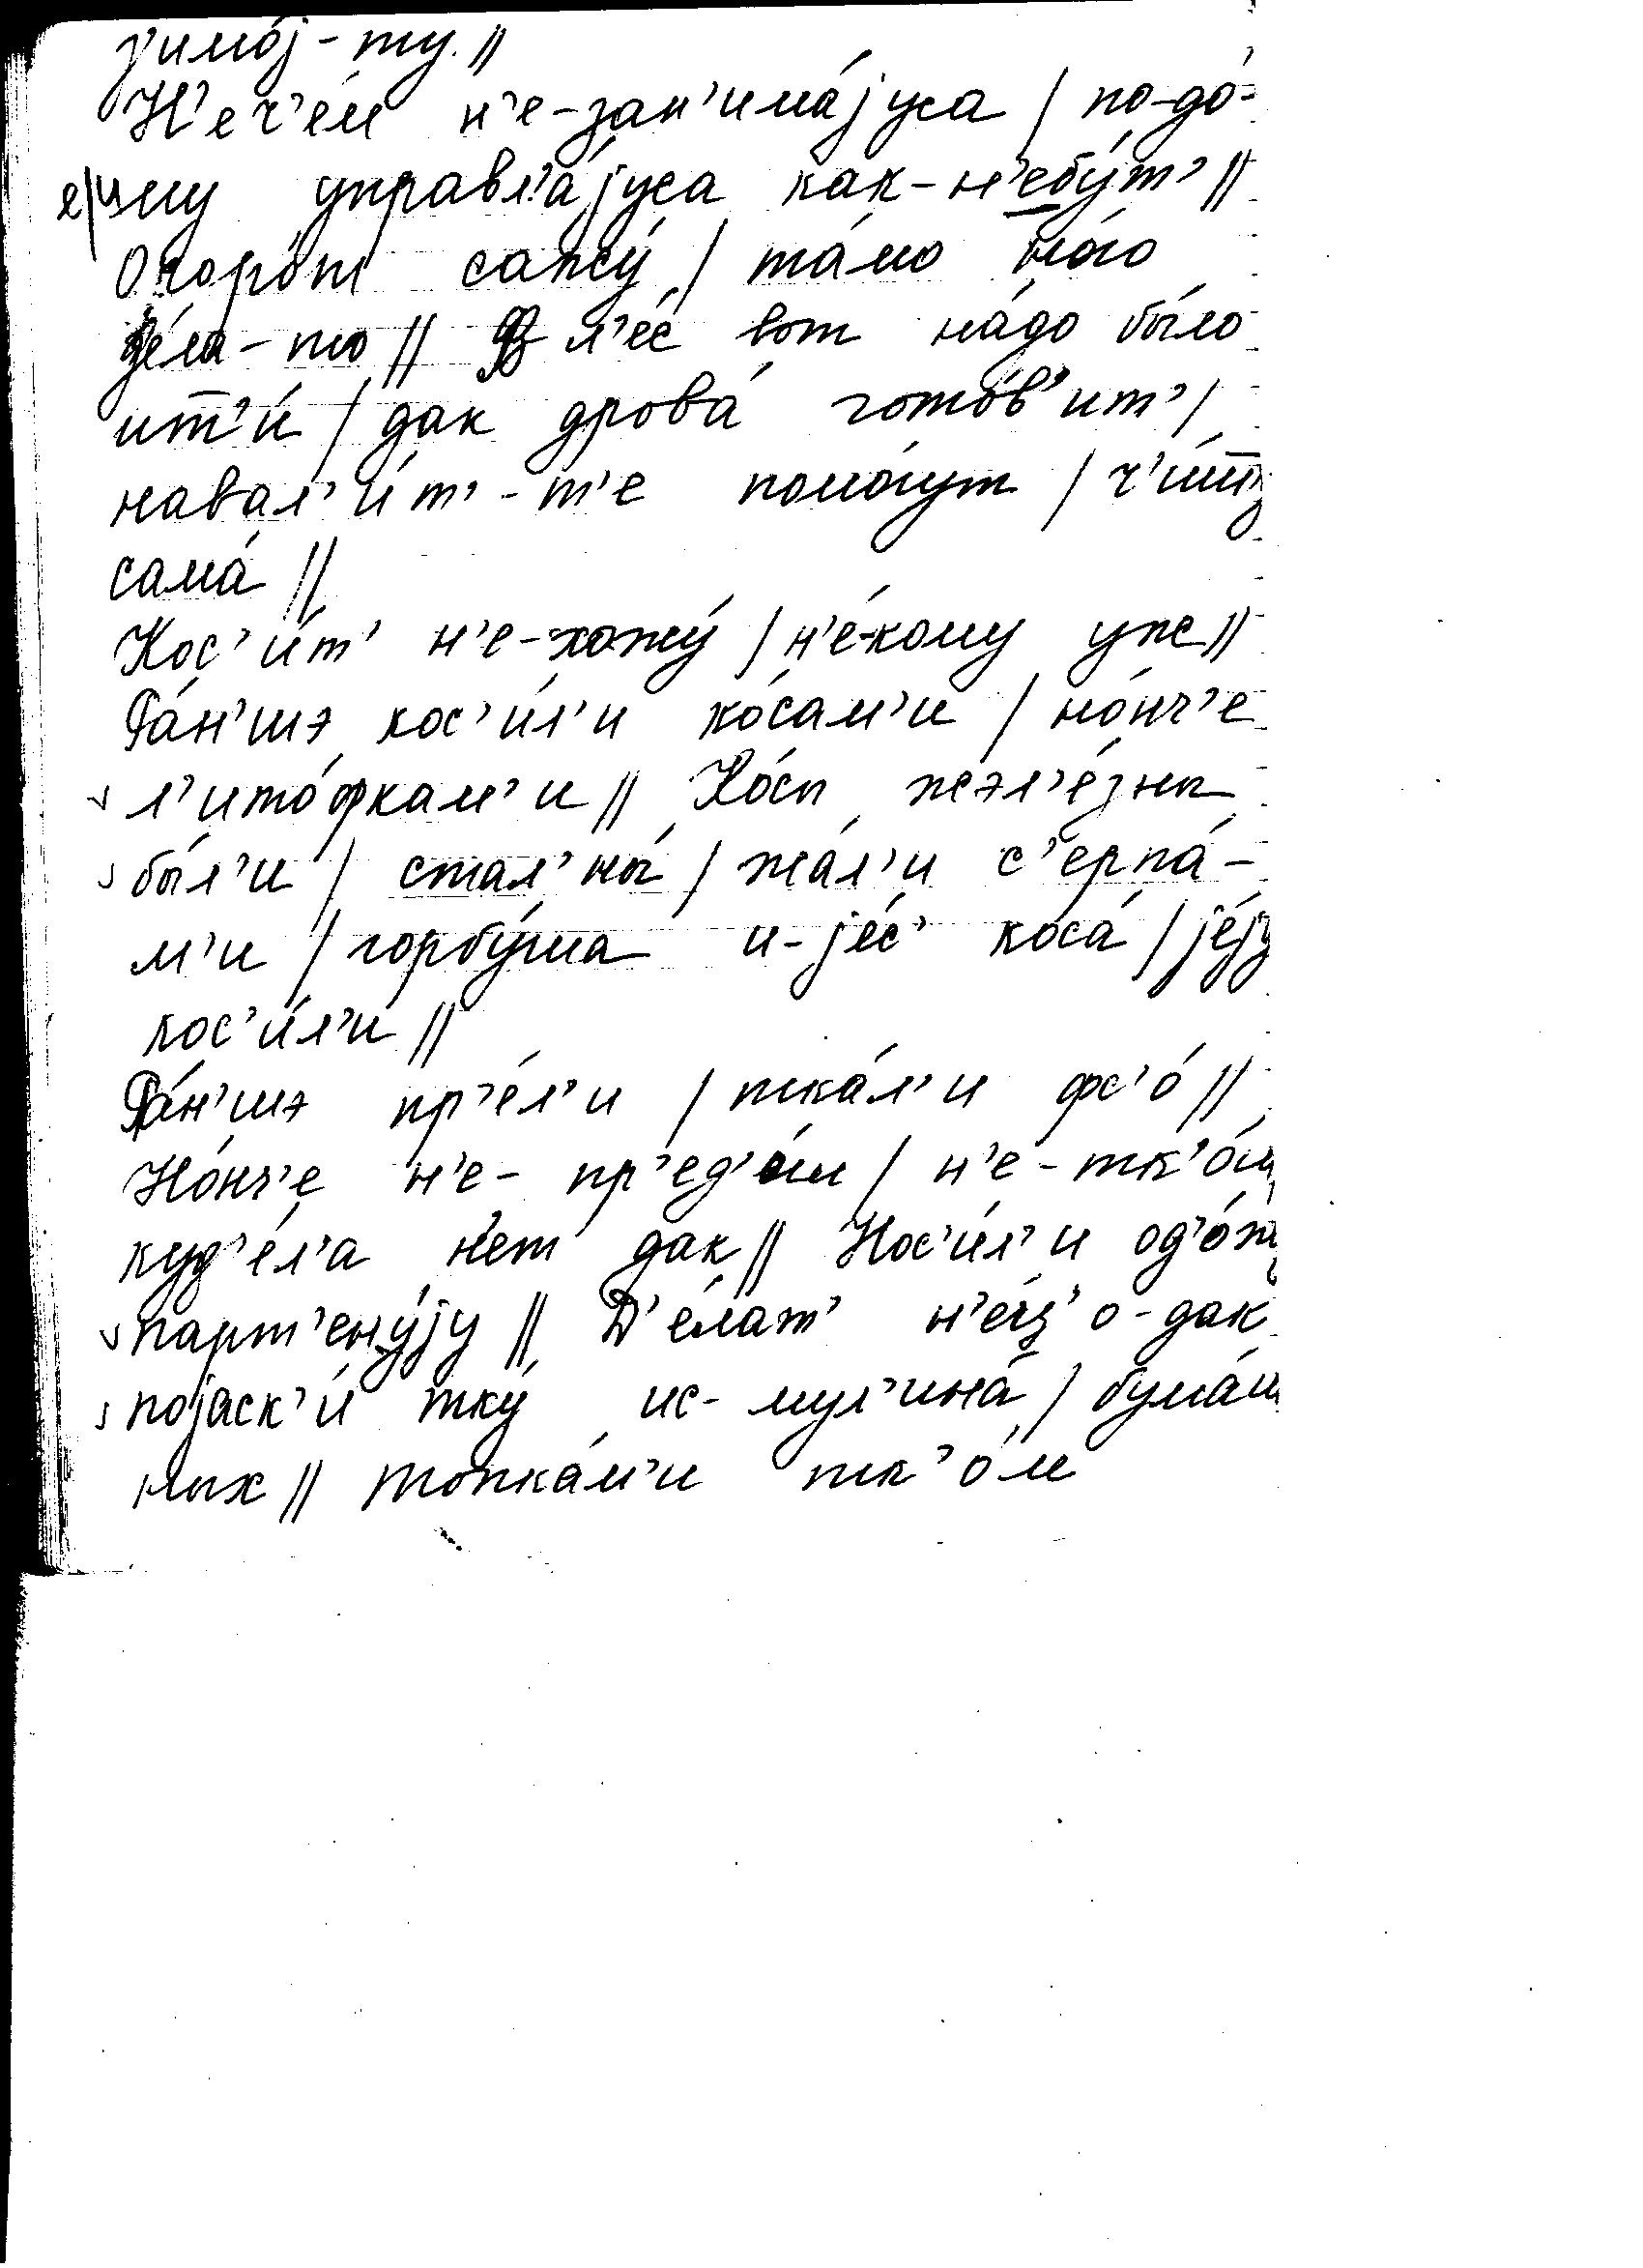 з'имо́ј-ту.//
Н'еч'е́м н'е-зан'има́јуса / по-до́-
му управл'а́јуса как-н'ебу́т' //
Огоро́т сажу́ / та́мо но́го
де́ла-то // В л'е́с вот на́до бы́ло
ит̅'и́ / дак дрова́ гото́в'ит' /
навал'и́т'-т'е помо́гут /
сама́ //
Кос'и́т' н'е-хожу́ / н'е́-кому уж //
Ра́н'шэ кос'и́л'и ко́сам'и / но́нч'е
л'ито́фкам'и // Ко́сы жэл'е́зны
бы́л'и / стал'ны́ / жа́л'и с'ерпа́-
м'и / горбу́ша и-је́с' коса́ / је́ју
кос'и́л'и //
Ра́н'шэ пр'е́л'и / тка́л'и фс'о́ //
Но́нч'е н'е- пр'ед'о́м / н'е-тк'о́м
куд'е́л'а н'ет дак // Нос'и́л'и од'о́ж
парт'ену́ју // Д'е́лат' н'е́ц'о-дак
појаск'и́ тку́ ис- мул'ина́ / бума́ш
ных // топка́м'и тк'о́м